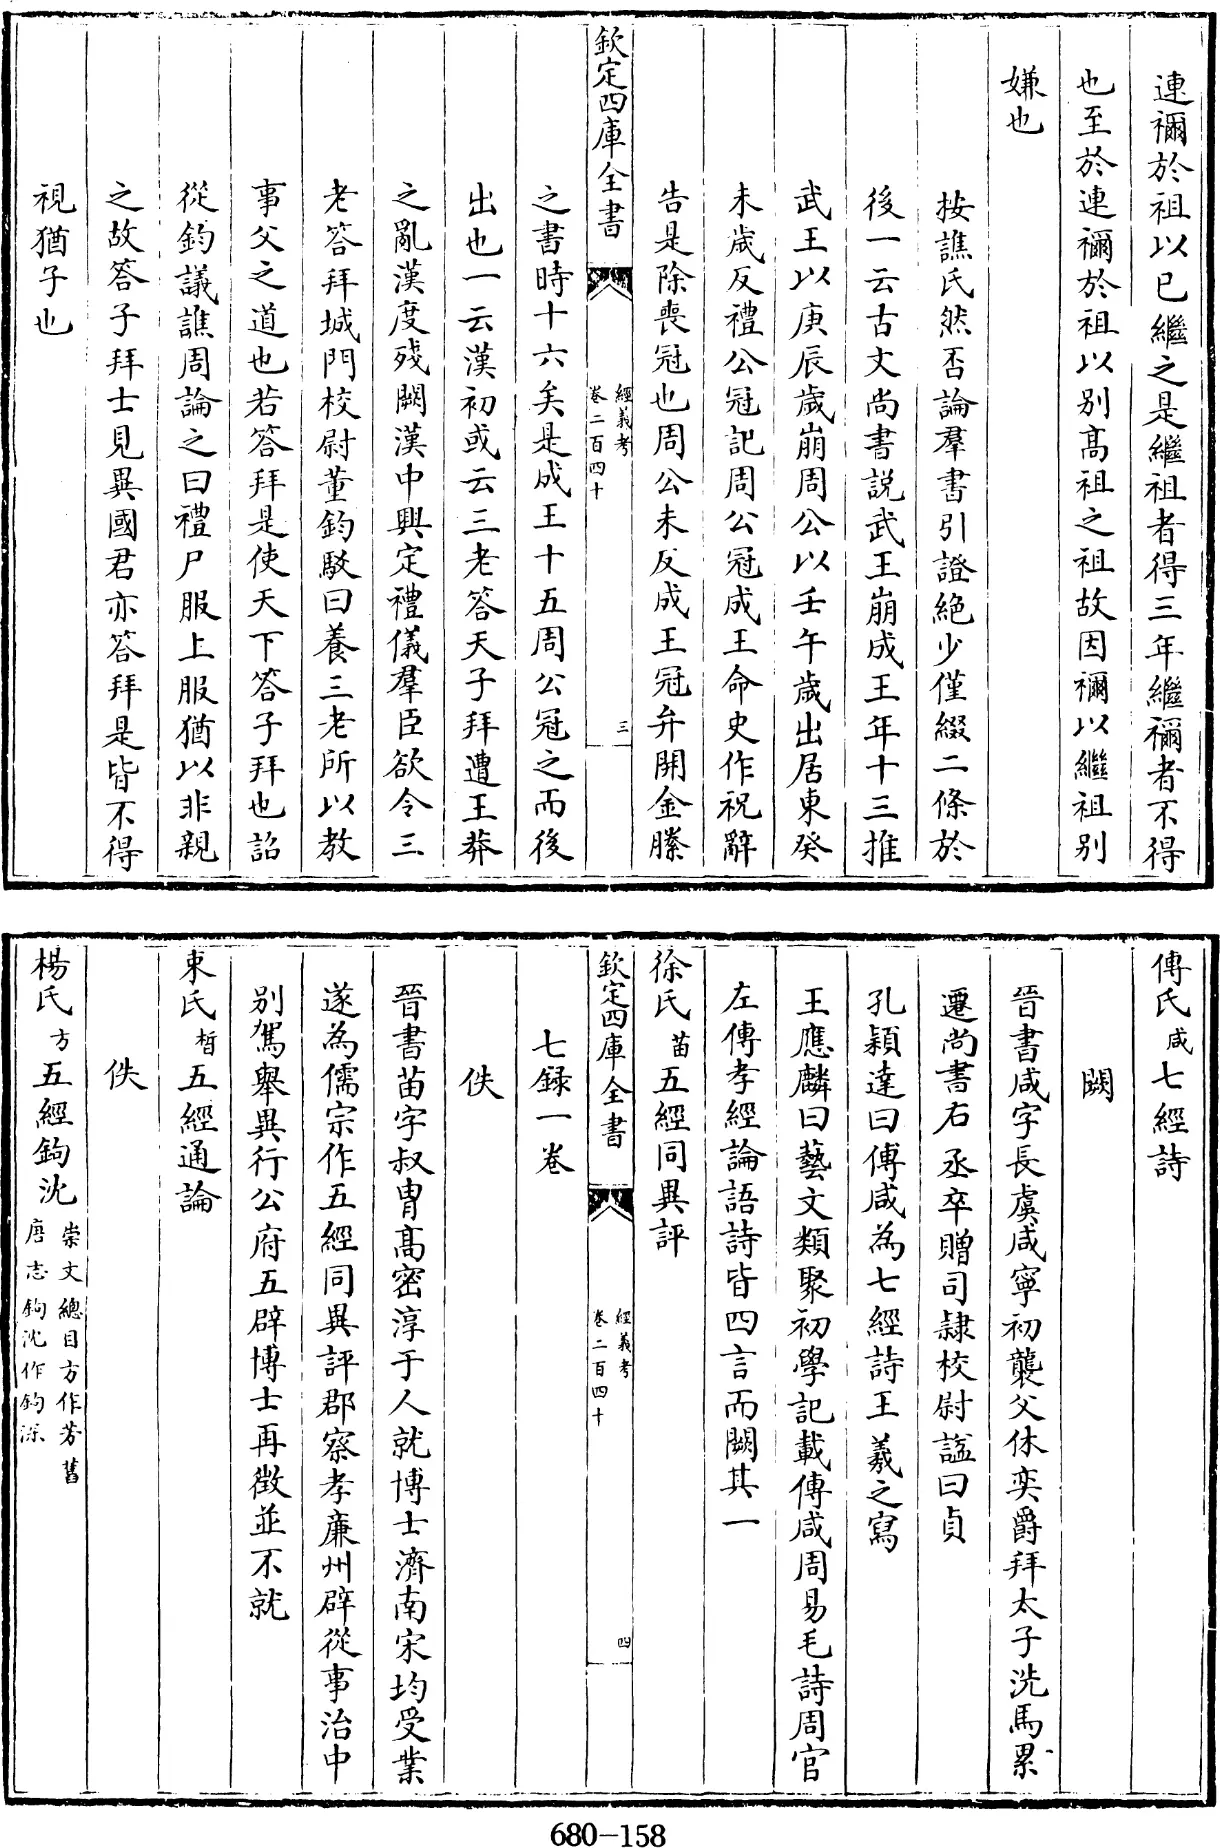 連禰於祖以已繼之是繼祖者得三年繼禰者不得
也至於連禰於祖以别髙祖之祖故因禰以繼祖别
嫌也
按譙氏然否論羣書引證絶少僅綴二條於
後一云古文尚書説武王崩成王年十三推
武王以庚辰歲崩周公以壬午歲出居東癸
未歲反禮公冠記周公冠成王命史作祝辭
告是除喪冠也周公未反成王冠弁開金縢
欽定四庫全書
經義考
卷二百四十
三
之書時十六矣是成王十五周公冠之而後
出也一云漢初或云三老答天子拜遭王莽
之亂漢度殘闕漢中興定禮儀羣臣欲令三
老答拜城門校尉董鈞駁曰養三老所以教
事父之道也若答拜是使天下答子拜也詔
從鈞議譙周論之曰禮尸服上服猶以非親
之故答子拜士見異國君亦答拜是皆不得
視猶子也
傅氏咸七經詩
闕
晉書咸字長虞咸寧初襲父休奕爵拜太子洗馬累
遷尚書右丞卒贈司隷校尉諡曰貞
孔穎達曰傅咸為七經詩王羲之寫
王應麟曰藝文類聚初學記載傅咸周易毛詩周官
左傳孝經論語詩皆四言而闕其一
徐氏苗五經同異評
欽定四庫全書
經義考
卷二百四十
四
七録一卷
佚
晉書苗字叔胄髙密淳于人就博士濟南宋均受業
遂為儒宗作五經同異評郡察孝廉州辟從事治中
别駕舉異行公府五辟博士再徴並不就
束氏晳五經通論
佚
楊氏方五經鉤沈崇文總目方作芳舊
唐志鉤沈作鉤深
680-158